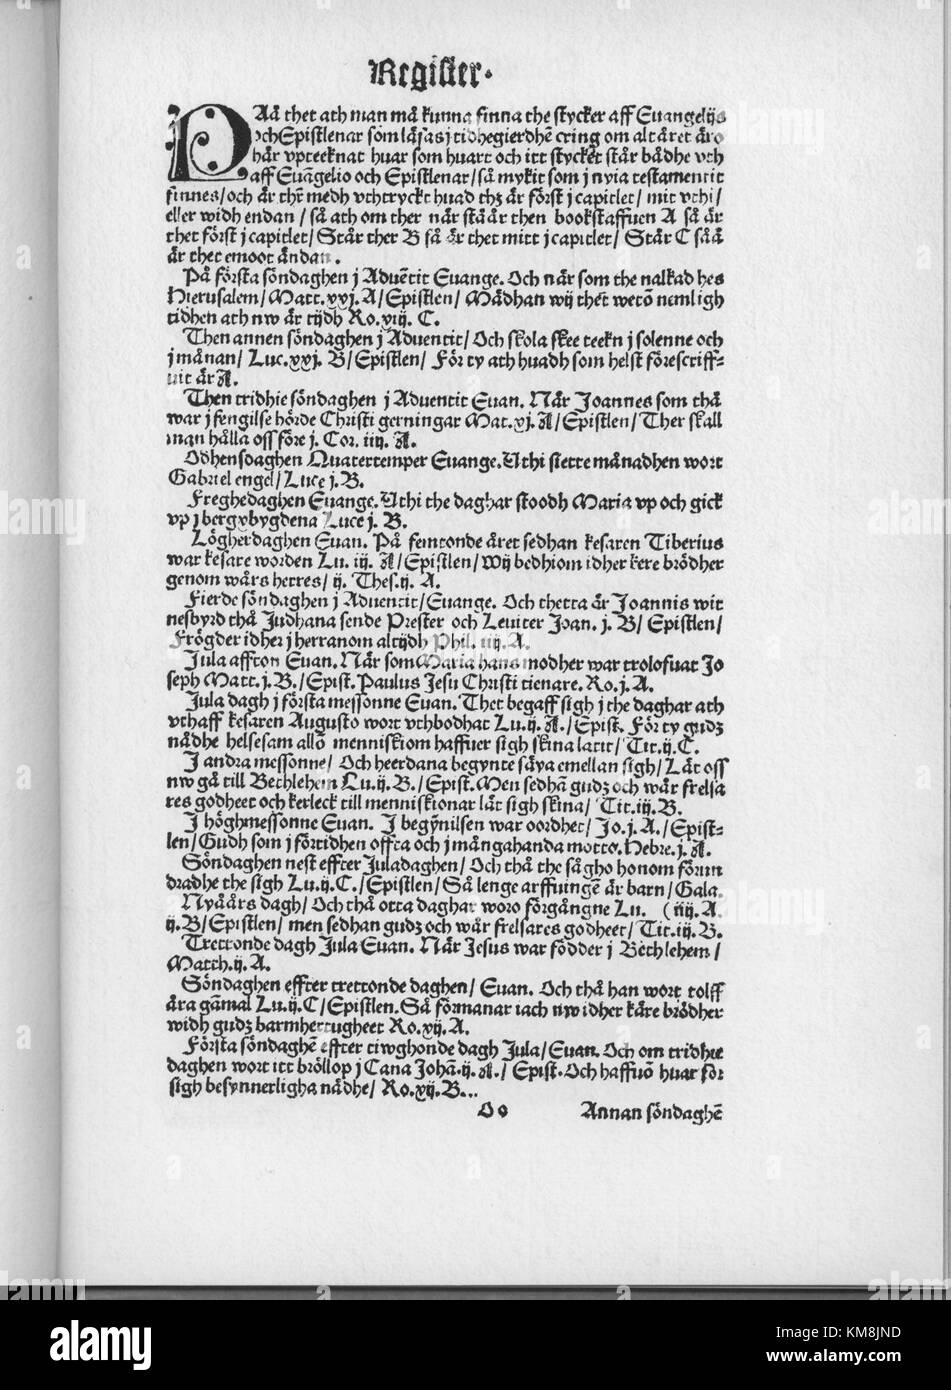 Register.
PAå thet ath man må kunna finna the stycker aff Euangelijs
ochEpistlenar som läsas j tidhegierdhē cring om alt året äro
här vpteeknat huar som huart och itt stycket står bådhe vth
aff Euāgelio och Epistlenar/ så mykit som j nyia testamentit
finnes/och är thr medh vthtryckt huad thz är först j capitlet/ mit vthi/
eller widh endan / så ath om ther när stå är then bookstaffuen A så är
thet först j capitlet/ Står ther B så är thet mitt j capitlet/ Står C så ä
är thet emoot ändan.
På första söndaghen j Aduētit Euange. Och när som the nalkad hes
Hierusalem/ Matt.xxj.A/Epistlen/ Mädhan wij thēt wetō nemligh
tidhen ath nw är tijdh Ro.xiij. C.
Then annen söndaghen j Aduentit/ Och skola skee teekn j solenne och
j månan/ Luc.xxj. B/Epistlen/ För ty ath huadh som helst förescriff=
uit är A.
Then tridhie söndaghen j Aduentit Euan. När Joannes som thå
war j fengilse hörde Christi gerningar Mat.xj.A/Epistlen/Ther skall
man hålla oss före j. Cor. iiij. A.
Odhensdaghen Quatertemper Euange.Vthi siette månadhen wort
Gabriel engel/ Luce j.B.
Freghedaghen Euange.Vthi the daghar stoodh Maria vp och gick
vp j bergxbygdena Luce j. B.
Lögherdaghen Euan. På femtonde äret sedhan kesaren Tiberius
war kesare worden Lu. iij. A/Epistlen/Wij bedhiom idher kere brödher
genom wårs herres/ ij. Thes.ij. A.
Fierde söndaghen j Aduentit/Euange. Och thetta är Joannis wit
nesbyrd thå Judhana sende Prester och Leuiter Joan. j. B/ Epistlen/
Frögder idher j herranom altijdh Phil. iiij.A.
Jula affton Euan. När som Maria hans modher war trolofuat Jo
seph Matt.j.B./Epist.Paulus Jesu Christi tienare. Ro.j.A.
Jula dagh j första messonne Euan. Thet begaff sigh j the daghar ath
vthaff kesaren Augusto wort vthbodhat Lu.ij.A./Epist. För ty gudz
nådhe helsesam allō menniskiom haffuer sigh skina latit/ Tit.ij.C.
J andra messonne/ Och heerdana begynte säya emellan sigh/ Lät oss
nw gå till Bethlehem Lu.ij.B./Epist.Men sedhā gudz och wår frelsa
res godheet och kerleck till menniskionar lät sigh skina/ Tit.iij.B.
J höghmessonne Euan. J begyñilsen war oordhet/ Jo.j.A./Epist=
len/Gudh som j förtidhen offta och j mångahanda motto. Hebre.j.A.
Söndaghen nest effter Juladaghen/ Och thå the sågho honom förun
dradhe the sigh Lu.ij.C./Epistlen/ Så lenge arffuingē är barn/ Gala.
Nyåårs dagh/ Och thå otta daghar woro förgångne Lu. ( iiij.A.
ij.B/Epistlen/ men sedhan gudz och wår frelsares godheet/ Tit.iij.B.
Trettonde dagh Jula Euan. När Jesus war födder j Bethlehem/
Matth.ij.A.
Söndaghen effter trettonde daghen/ Euan. Och thå han wort tolff
åra gāmal Lu.ij.C/Epistlen.Så förmanar iach nw idher käre brödher
widh gudz barmhertugheet Ro.xij.A.
Första söndaghē effter tiwghonde dagh Jula/Euan. Och om tridhie
daghen wort itt bröllop j Cana Johā.ij.A./ Epist.Och haffuō huar för
sigh besynnerligha nådhe/ Ro.xij.B...
Oo Annan söndaghē
alamy
Image ID: KM8JND
www.alamy.com